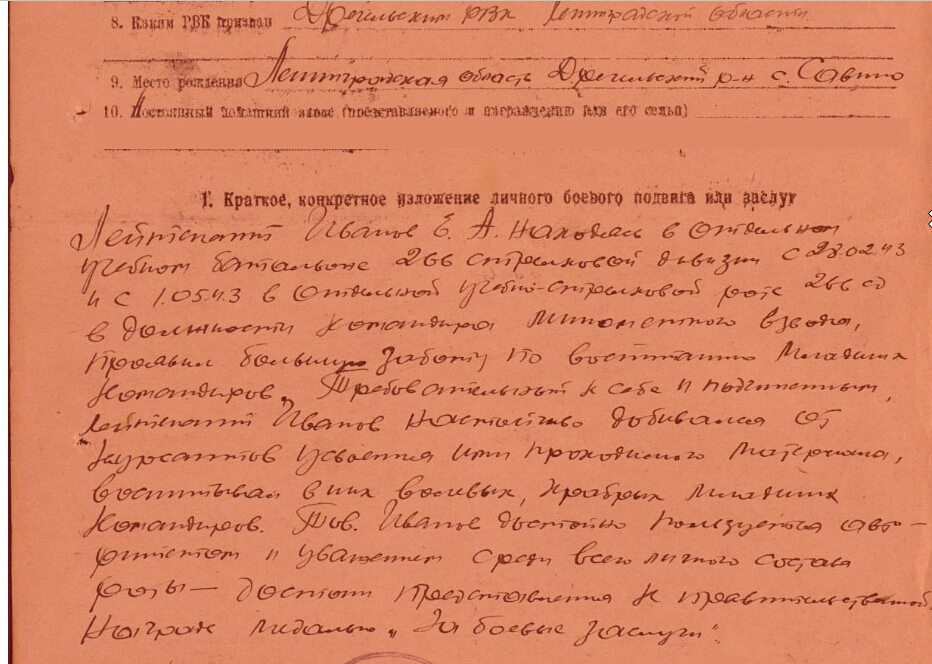 8. Каким РВК призван Дрегельским РВК Ленинградской области
9. Место рождения Ленинградская область Дрегельский р-н с. Савино
10. Постоянный домашний адрес (представляемого к награждению или его семьи)
I. Краткое, конкретное изложение личного боевого подвига или заслуг
Лейтенант Иванов Е. А. находясь в Отдельном
учебном батальоне 266 стрелковой дивизии с 28.02.43
и с 1.05.43 в Отдельной учебно-стрелковой роте 266 сд
в должности командира минометного взвода,
проявил большую заботу по воспитанию младших
командиров. Требовательный к себе и подчиненным,
лейтенант Иванов настойчиво добивался от
курсантов усвоения ими проходимого материала,
воспитывал в них волевых, храбрых младших
командиров. Тов. Иванов достойно пользуется авто-
ритетом и уважением среди всего личного состава
роты — достоин представления к правительственной
награде медалью „За боевые заслуги".